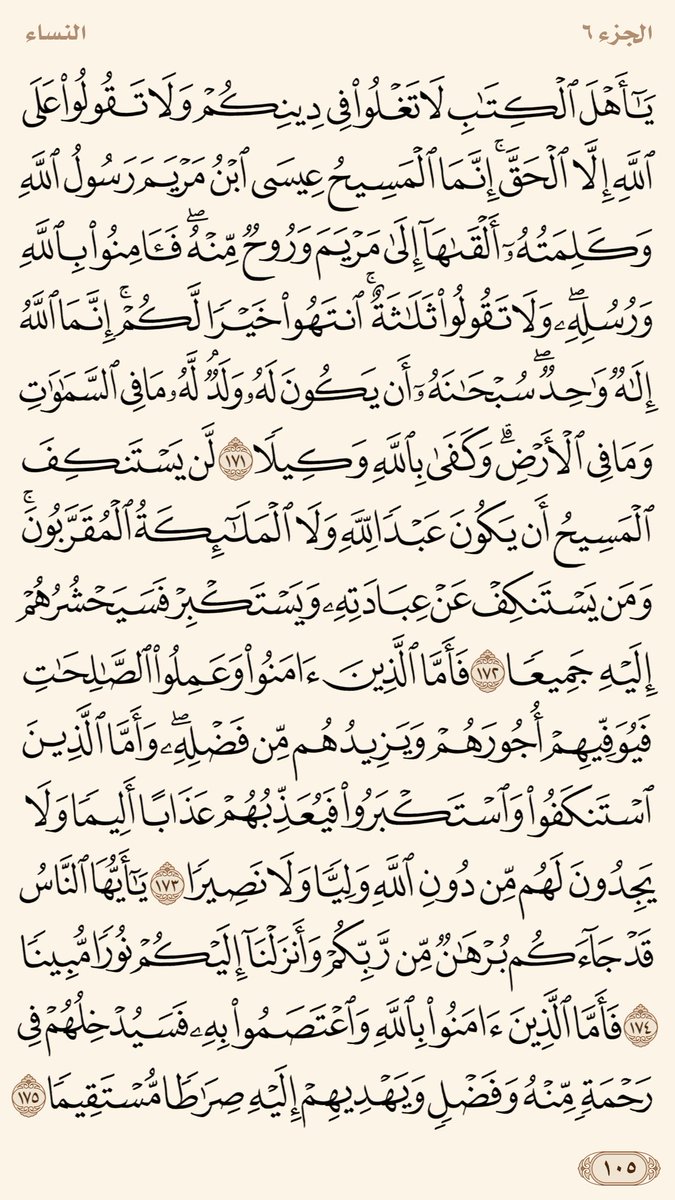 الجزء ٦
النساء
يَـٰٓأَهۡلَ ٱلۡكِتَـٰبِ لَا تَغۡلُواْ فِي دِينِكُمۡ وَلَا تَقُولُواْ عَلَى
ٱللَّهِ إِلَّا ٱلۡحَقَّۚ إِنَّمَا ٱلۡمَسِيحُ عِيسَى ٱبۡنُ مَرۡيَمَ رَسُولُ ٱللَّهِ
وَكَلِمَتُهُۥٓ أَلۡقَىٰهَآ إِلَىٰ مَرۡيَمَ وَرُوحٞ مِّنۡهُۖ فَـَٔامِنُواْ بِٱللَّهِ
وَرُسُلِهِۦۖ وَلَا تَقُولُواْ ثَلَـٰثَةٌۚ ٱنتَهُواْ خَيۡرٗا لَّكُمۡۚ إِنَّمَا ٱللَّهُ
إِلَـٰهٞ وَٰحِدٞۖ سُبۡحَـٰنَهُۥٓ أَن يَكُونَ لَهُۥ وَلَدٞۘ لَّهُۥ مَا فِي ٱلسَّمَـٰوَٰتِ
وَمَا فِي ٱلۡأَرۡضِۗ وَكَفَىٰ بِٱللَّهِ وَكِيلٗا ١٧١ لَّن يَسۡتَنكِفَ
ٱلۡمَسِيحُ أَن يَكُونَ عَبۡدٗا لِّلَّهِ وَلَا ٱلۡمَلَـٰٓئِكَةُ ٱلۡمُقَرَّبُونَۚ
وَمَن يَسۡتَنكِفۡ عَنۡ عِبَادَتِهِۦ وَيَسۡتَكۡبِرۡ فَسَيَحۡشُرُهُمۡ
إِلَيۡهِ جَمِيعٗا ١٧٢ فَأَمَّا ٱلَّذِينَ ءَامَنُواْ وَعَمِلُواْ ٱلصَّـٰلِحَـٰتِ
فَيُوَفِّيهِمۡ أُجُورَهُمۡ وَيَزِيدُهُم مِّن فَضۡلِهِۦۖ وَأَمَّا ٱلَّذِينَ
ٱسۡتَنكَفُواْ وَٱسۡتَكۡبَرُواْ فَيُعَذِّبُهُمۡ عَذَابًا أَلِيمٗا وَلَا
يَجِدُونَ لَهُم مِّن دُونِ ٱللَّهِ وَلِيّٗا وَلَا نَصِيرٗا ١٧٣ يَـٰٓأَيُّهَا ٱلنَّاسُ
قَدۡ جَآءَكُم بُرۡهَـٰنٞ مِّن رَّبِّكُمۡ وَأَنزَلۡنَآ إِلَيۡكُمۡ نُورٗا مُّبِينٗا
١٧٤ فَأَمَّا ٱلَّذِينَ ءَامَنُواْ بِٱللَّهِ وَٱعۡتَصَمُواْ بِهِۦ فَسَيُدۡخِلُهُمۡ فِي
رَحۡمَةٖ مِّنۡهُ وَفَضۡلٖ وَيَهۡدِيهِمۡ إِلَيۡهِ صِرَٰطٗا مُّسۡتَقِيمٗا ١٧٥
١٠٥